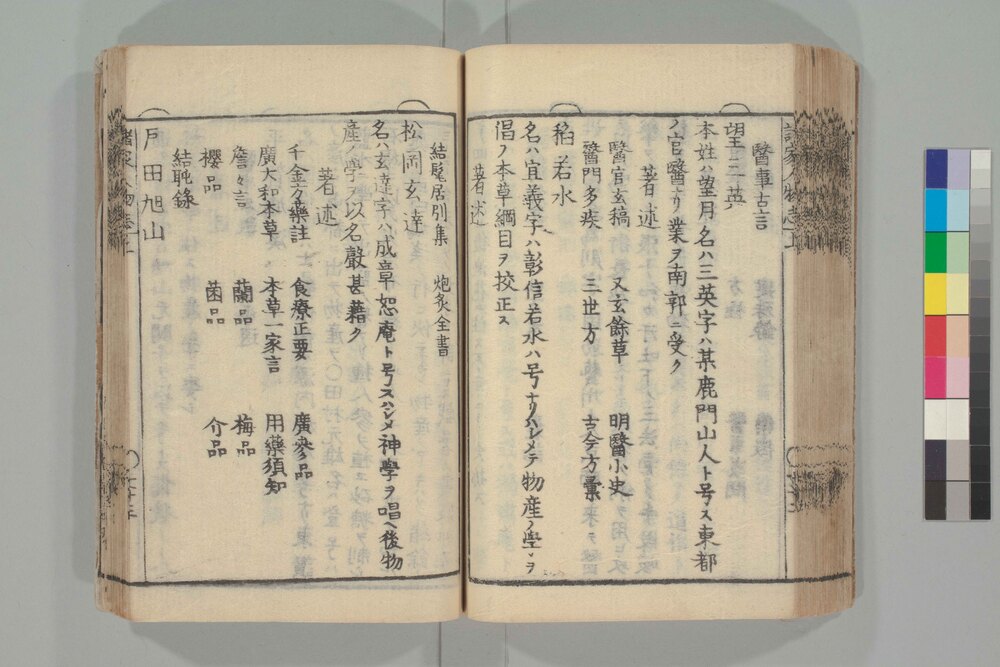 醫事古言
望三英
本姓ハ望月名ハ三英字ハ某鹿門山人ト号ス東都
ノ官醫ナリ業ヲ南郭ニ受ク
著述
醫官玄稿 又玄餘草 明醫小史
醫門多疾 三世方 古今方彙
稻若水
名ハ宜義字ハ彰信若水ハ号ナリハシメテ物産ノ學ヲ
倡フ本草綱目ヲ校正ス
著述
結髦居別集 炮炙全書
松岡玄達
名ハ玄達字ハ成章恕庵ト号スハシメ神學ヲ唱ヘ後物
産ノ學ス以名聲甚藉ク
著述
千金方藥註 食療正要 廣參品
廣大和本草 本草一家言 用藥須知
詹々言 蘭品 梅品
櫻品 菌品 介品
結毦錄
戸田旭山
諸家人物志上